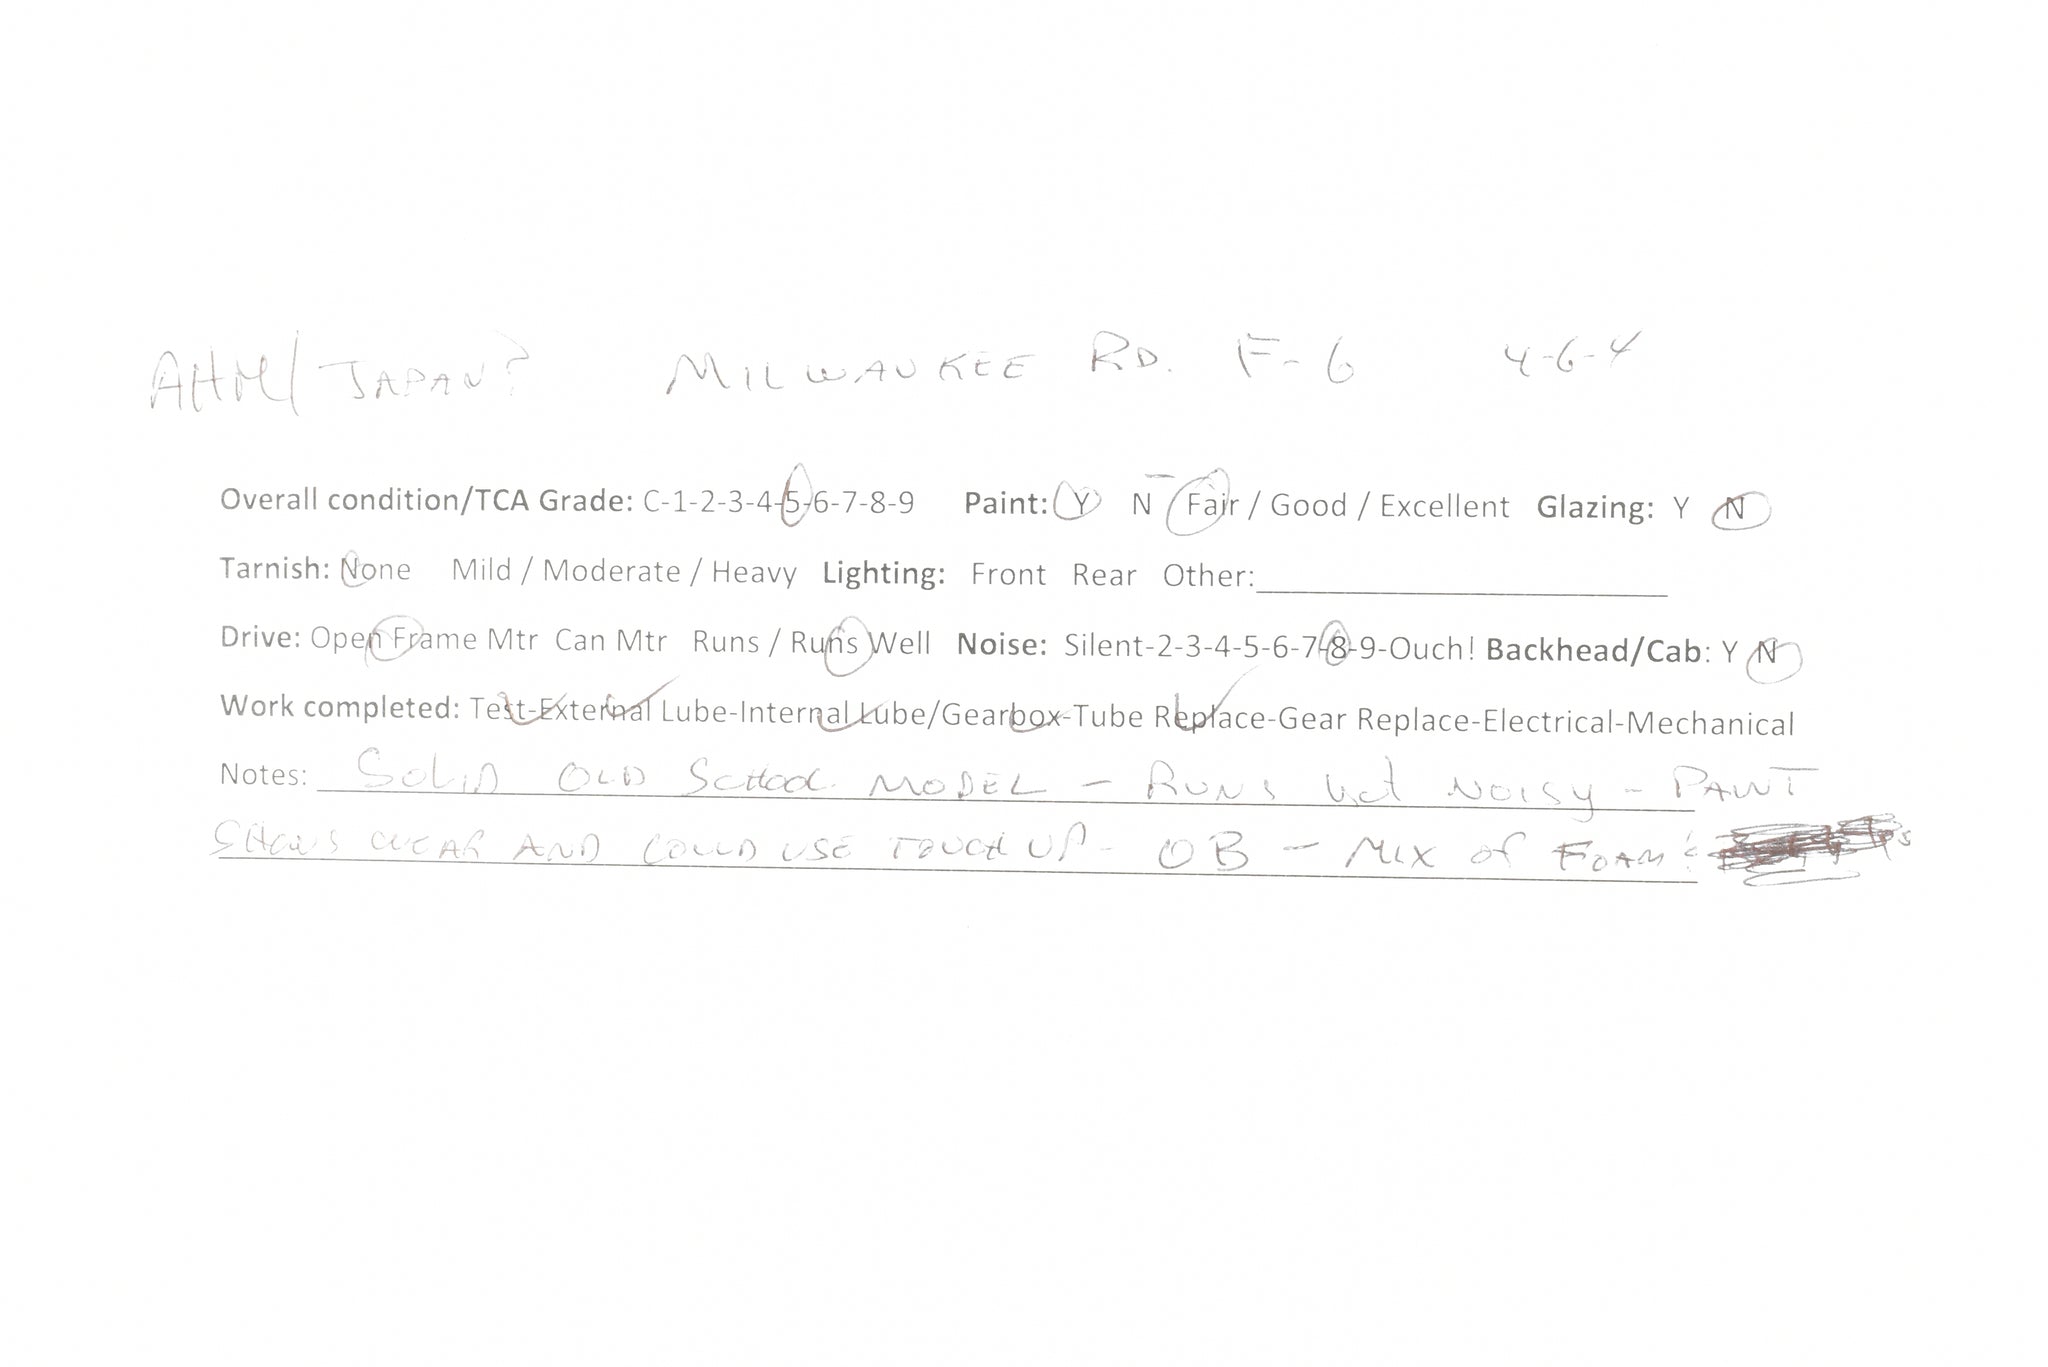 AHM/JAPAN? MILWAUKEE RD. F-6 4-6-4
Overall condition/TCA Grade: C-1-2-3-4-5-6-7-8-9 Paint: Y N Fair / Good / Excellent Glazing: Y N
Tarnish: None Mild / Moderate / Heavy Lighting: Front Rear Other:
Drive: Open Frame Mtr Can Mtr Runs / Runs Well Noise: Silent-2-3-4-5-6-7-8-9-Ouch! Backhead/Cab: Y N
Work completed: Test-External Lube-Internal Lube/Gearbox-Tube Replace-Gear Replace-Electrical-Mechanical
Notes: SOLID OLD SCHOOL MODEL - RUNS but NOISY - PAINT
SHOWS WEAR AND COULD USE TOUCH UP - OB - MIX of FOAM